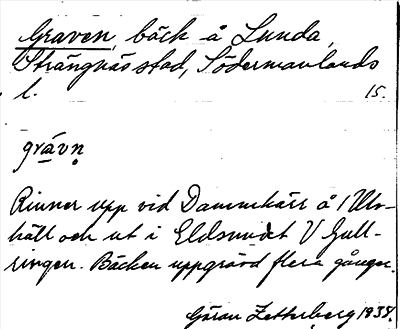 Graven, bäck å Lunda,
Strängnäs stad, Södermanlands
l. 15.
grävn
Rinner upp vid Dammkärr å Ulv-
häll och ut i Eldsundet V Gull-
ringen. Bäcken uppgrävd flera gånger.
Göran Zetterberg 1938.